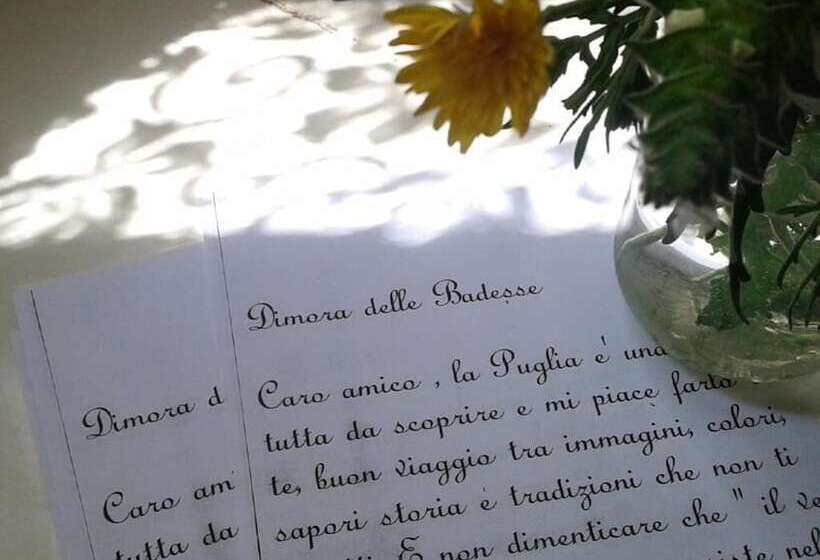 Dimora delle Badesse
Caro amico , la Puglia e' una
tutta da scoprire e mi piace farlo
te, buon viaggio tra immagini, colori,
sapori storia e tradizioni che non ti
E non dimenticare che " il ve
Dimora d
Caro am
tutta da